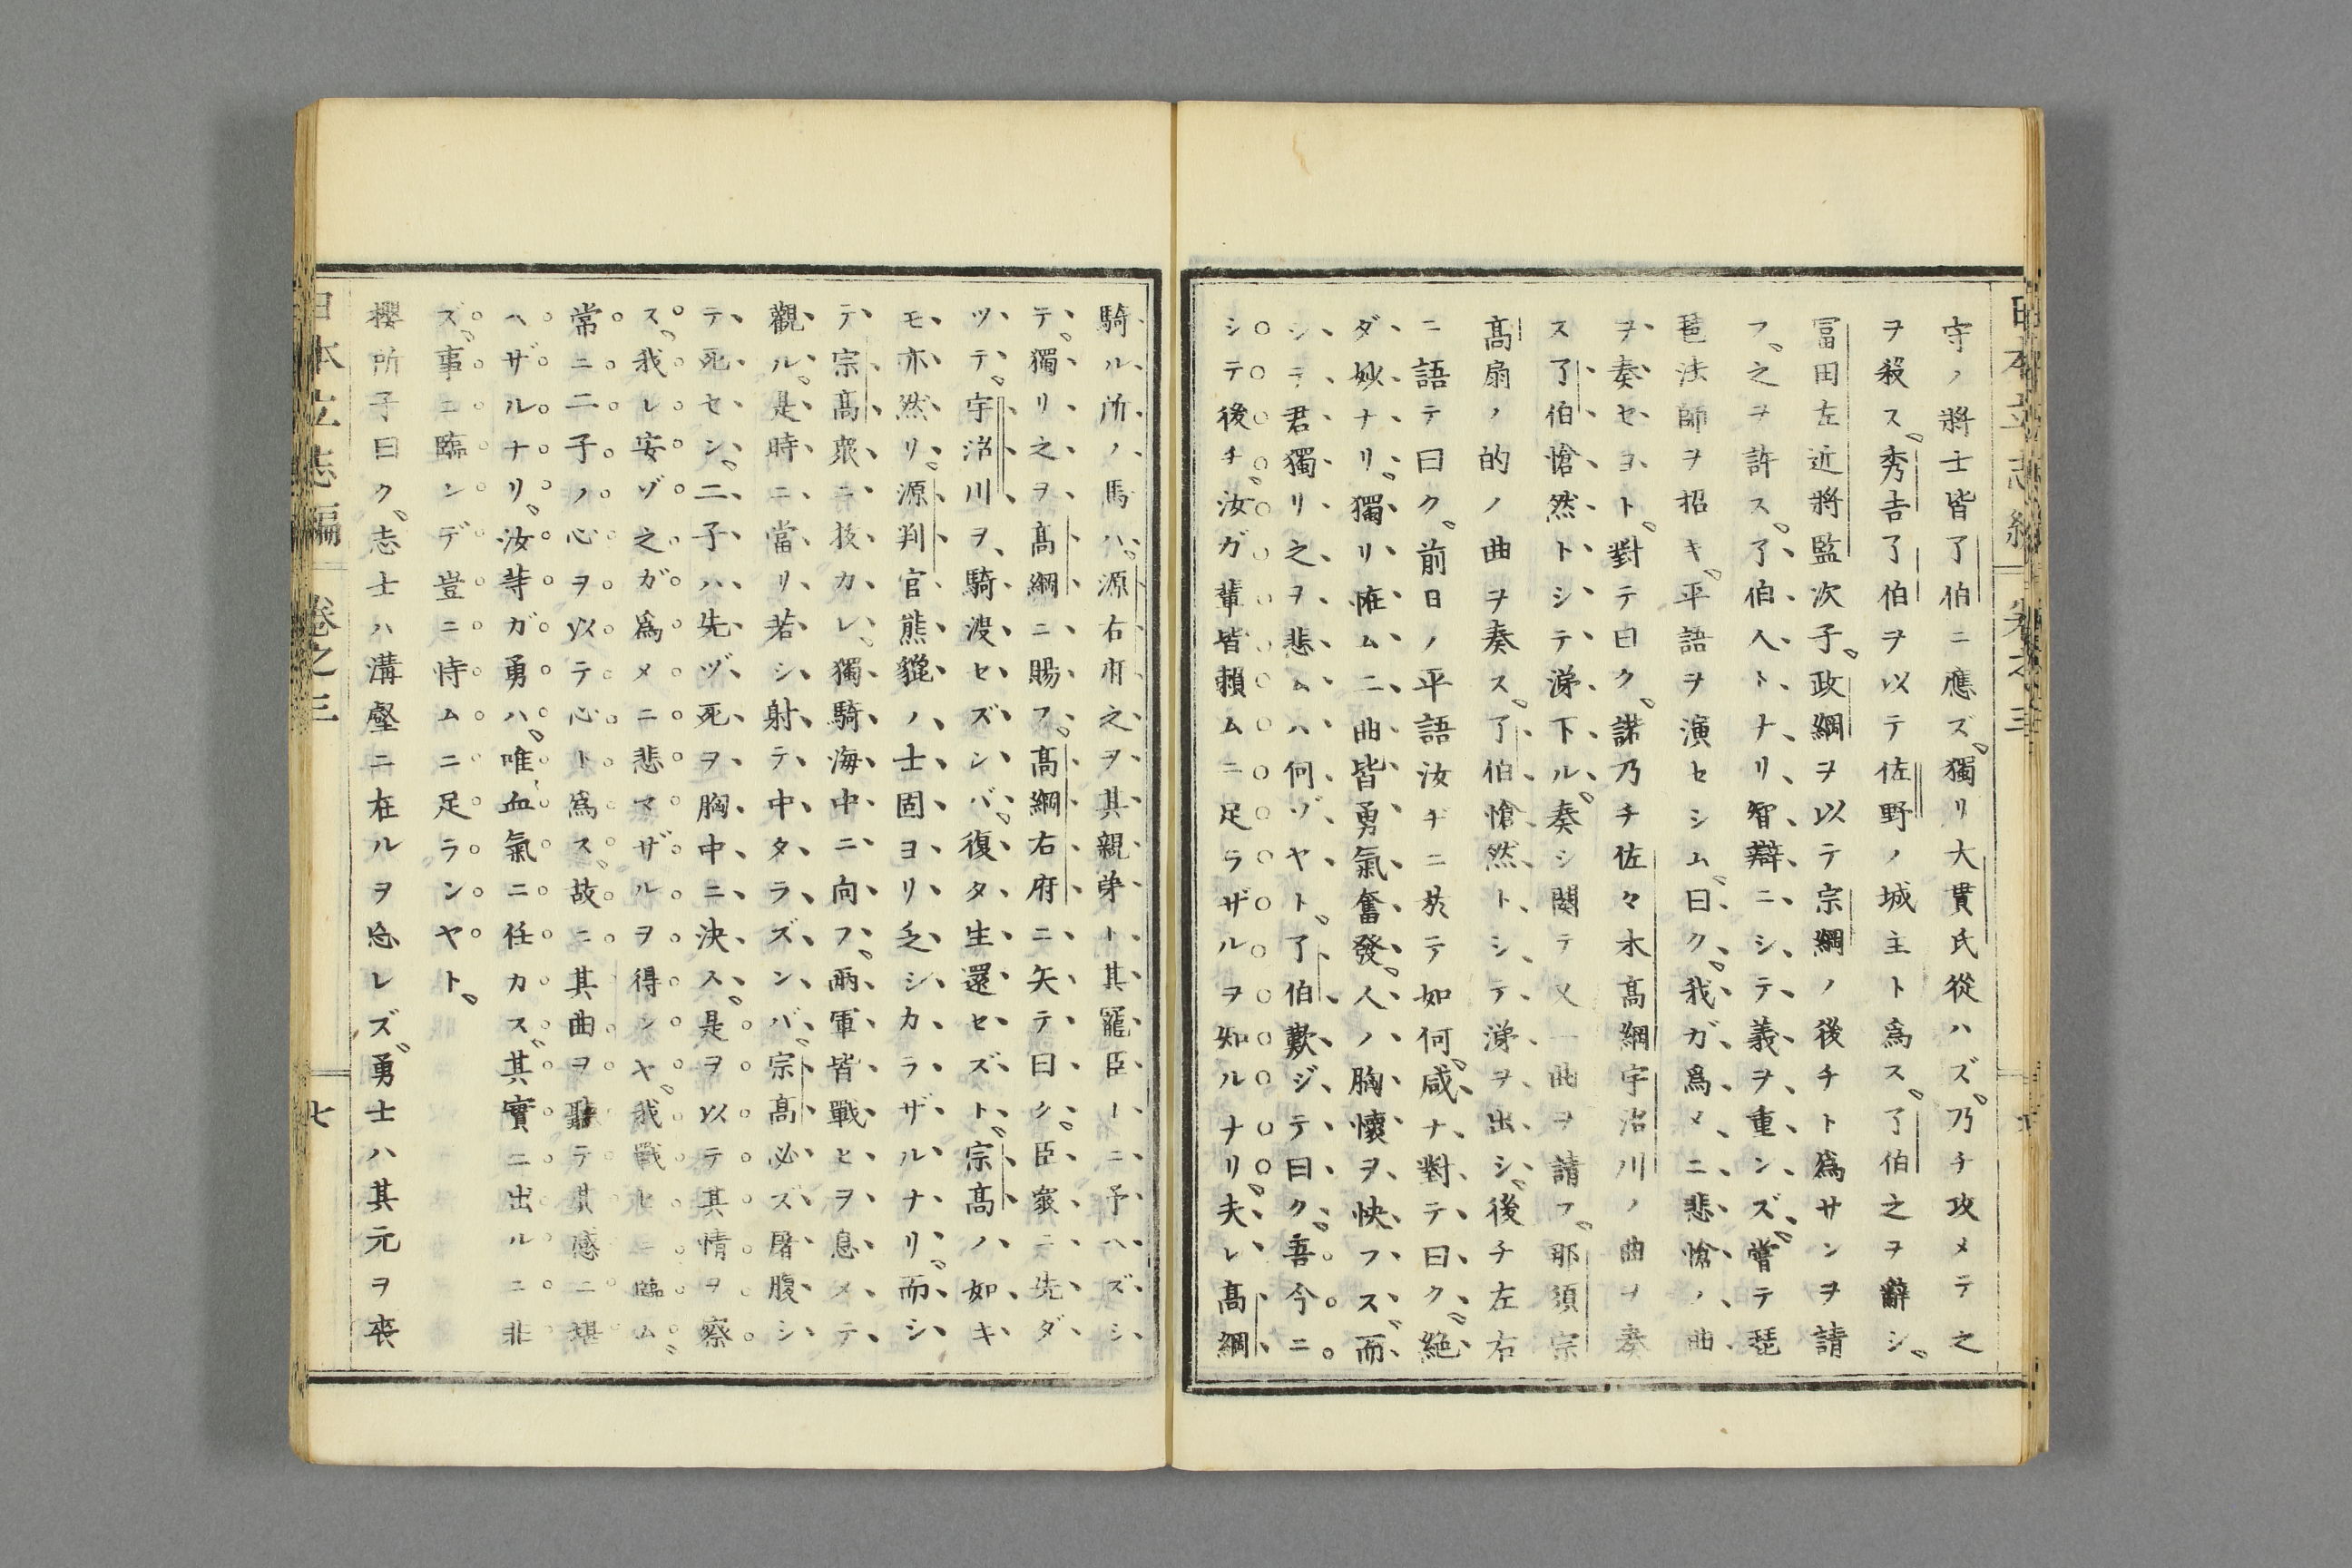 守ノ將士皆了伯ニ應ズ。獨リ大貫氏從ハズ。乃チ攻メテ之
ヲ殺ス。秀吉了伯ヲ以テ佐野ノ城主ト爲ス。了伯之ヲ辭シ。
冨田左近將監次子。政綱ヲ以テ宗綱ノ後チト爲サンヲ請
フ。之ヲ許ス。了伯人トナリ智辯ニシテ義ヲ重ンズ。嘗テ琵
琶法師ヲ招キ。平語ヲ演セシム。曰ク。我ガ爲メニ悲愴ノ曲
ヲ奏セヨト。對テ曰ク。諾乃チ佐々木髙綱宇治川ノ曲ヲ奏
ス了伯愴然トシテ涕下ル。奏シ関テ又一曲ヲ請フ。那須宗
髙扇ノ的ノ曲ヲ奏ス。了伯愴然トシテ涕ヲ出シ。後チ左右
ニ語テ曰ク。前日ノ平語汝ヂニ於テ如何。咸ナ對テ曰ク。絶
ダ妙ナリ。獨リ恠ム二曲皆勇氣奮發。人ノ胸懷ヲ快フス。而
シテ君獨リ之ヲ悲ムハ何ゾヤト。了伯歎ジテ曰ク。吾今ニ
シテ後チ。汝ガ輩皆賴ムニ足ラザルヲ知ルナリ。夫レ髙綱
騎ル所ノ馬ハ。源右府之ヲ其親弟ト其寵臣ーニ予ヘズシ
テ。獨リ之ヲ髙綱ニ賜フ。髙綱右府ニ矢テ曰ク。臣衆ニ先ダ
ツテ。宇治川ヲ、騎渡セズシバ。復タ生還セズト。宗髙ノ如キ
モ亦然リ。源判官熊貔ノ士固ヨリ乏シカラザルナリ。而シ
テ宗髙衆ニ抜カレ。獨騎海中ニ向フ。兩軍皆戰ヒヲ息メテ
觀ル。是時ニ當リ若シ射テ中タラズンバ。宗髙必ズ屠腹シ
テ死セシ。二子ハ先ヅ死ヲ胸中ニ決ス。是ヲ以テ其情ヲ察
ス。我レ安ゾ之ガ爲メニ悲マザルヲ得ンヤ。我戰ヒニ臨ム。
常ニ二子ノ心ヲ以テ心ト爲ス。故ニ其曲ヲ聽テ其感ニ堪
ヘザルナリ。汝等ガ勇ハ。唯血氣ニ任カス。其實ニ出ルニ非
ズ。事ニ臨ンデ豈ニ恃ムニ足ランヤト。
櫻所子曰ク。志士ハ溝壑ニ在ルヲ忘レズ。勇士ハ其元ヲ喪
日本立志編 卷之三 七